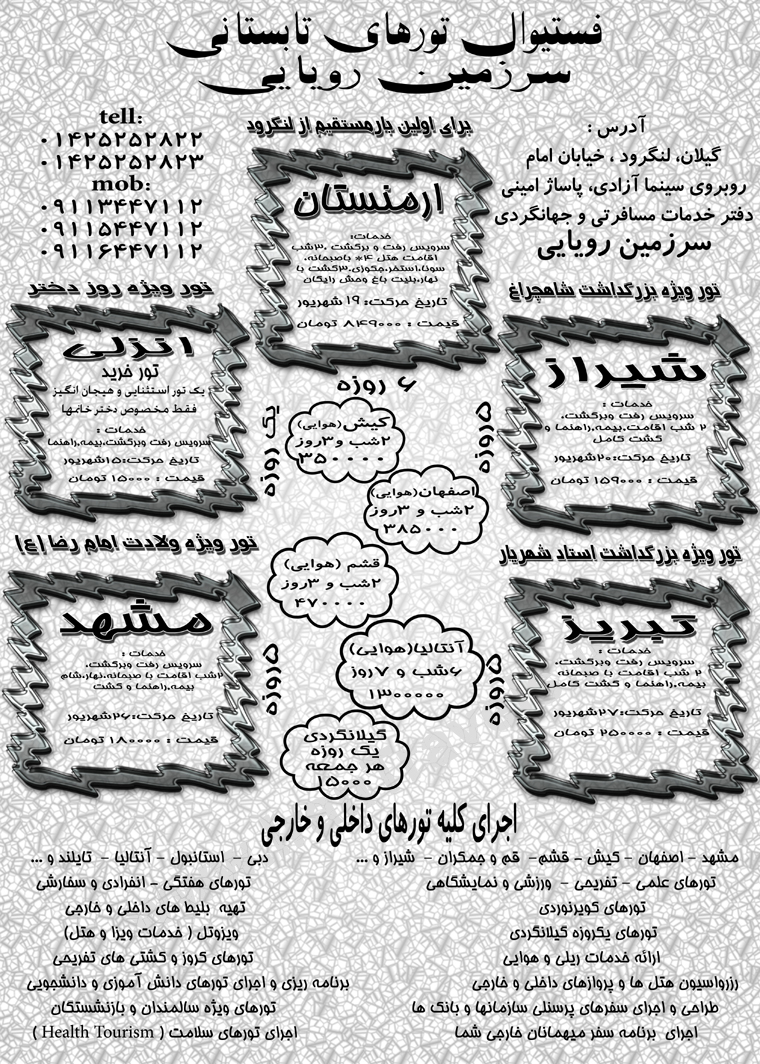 فستیوال تورهای تابستانی
سرزمین رویایی
آدرس :
گیلان، لنگرود ، خیابان امام
روبروی سینما آزادی، پاساژ امینی
دفتر خدمات مسافرتی و جهانگردی
سرزمین رویایی
tell:
۰۱۴۲۵۲۵۲۸۲۲
۰۱۴۲۵۲۵۲۸۲۳
mob:
۰۹۱۱۳۴۴۷۱۱۲
۰۹۱۱۵۴۴۷۱۱۲
۰۹۱۱۶۴۴۷۱۱۲
برای اولین بار مستقیم از لنگرود
ارمنستان
خدمات:
سرویس رفت و برگشت .۳شب
اقامت هتل ۴* باصبحانه.
سونا.استخر.جکوزی.۳گشت با
نهار.بلیت باغ وحش رایگان
تاریخ حرکت: ۱۹ شهریور
قیمت : ۸۴۹۰۰۰ تومان
۶ روزه
تور ویژه بزرگداشت شاهچراغ
شیراز
خدمات :
سرویس رفت وبرگشت.
۲ شب اقامت.بیمه.راهنما و
گشت کامل
تاریخ حرکت:۲۰شهریور
قیمت : ۱۵۹۰۰۰ تومان
۵روزه
تور ویژه روز دختر
انزلی
تور خرید
یک تور استثنایی و هیجان انگیز
فقط مخصوص دختر خانمها
خدمات :
سرویس رفت وبرگشت.بیمه.راهنما
تاریخ حرکت:۱۵شهریور
قیمت : ۱۵۰۰۰ تومان
یک روزه
کیش(هوایی)
۲شب و۳روز
۳۵۰۰۰۰
اصفهان(هوایی)
۲شب و ۳روز
۳۸۵۰۰۰
قشم (هوایی)
۲شب و ۳روز
۴۷۰۰۰۰
آنتالیا(هوایی)
۶شب و ۷روز
۱۳۰۰۰۰۰
گیلانگردی
یک روزه
هر جمعه
۱۵۰۰۰
تور ویژه بزرگداشت استاد شهریار
تبریز
خدمات :
سرویس رفت وبرگشت.
۲ شب اقامت با صبحانه
بیمه.راهنما و گشت کامل
تاریخ حرکت:۲۷شهریور
قیمت : ۲۵۰۰۰۰ تومان
۵روزه
تور ویژه ولادت امام رضا (ع)
مشهد
خدمات :
سرویس رفت وبرگشت.
۲شب اقامت با صبحانه.نهار.شام
بیمه.راهنما و گشت
تاریخ حرکت:۲۶شهریور
قیمت : ۱۸۰۰۰۰ تومان
۵روزه
اجرای کلیه تورهای داخلی و خارجی
مشهد - اصفهان - کیش - قشم- قم و جمکران - شیراز و ...
تورهای علمی - تفریحی - ورزشی و نمایشگاهی
تورهای کویرنوردی
تورهای یکروزه گیلانگردی
ارائه خدمات ریلی و هوایی
رزرواسیون هتل ها و پروازهای داخلی و خارجی
طراحی و اجرای سفرهای پرسنلی سازمانها و بانک ها
اجرای برنامه سفر میهمانان خارجی شما
دبی - استانبول - آنتالیا - تایلند و ...
تورهای هفتگی - انفرادی و سفارشی
تهیه بلیط های داخلی و خارجی
ویزوتل ( خدمات ویزا و هتل)
تورهای کروز و کشتی های تفریحی
برنامه ریزی و اجرای تورهای دانش آموزی و دانشجویی
تورهای ویژه سالمندان و بازنشستگان
اجرای تورهای سلامت ( Health Tourism )